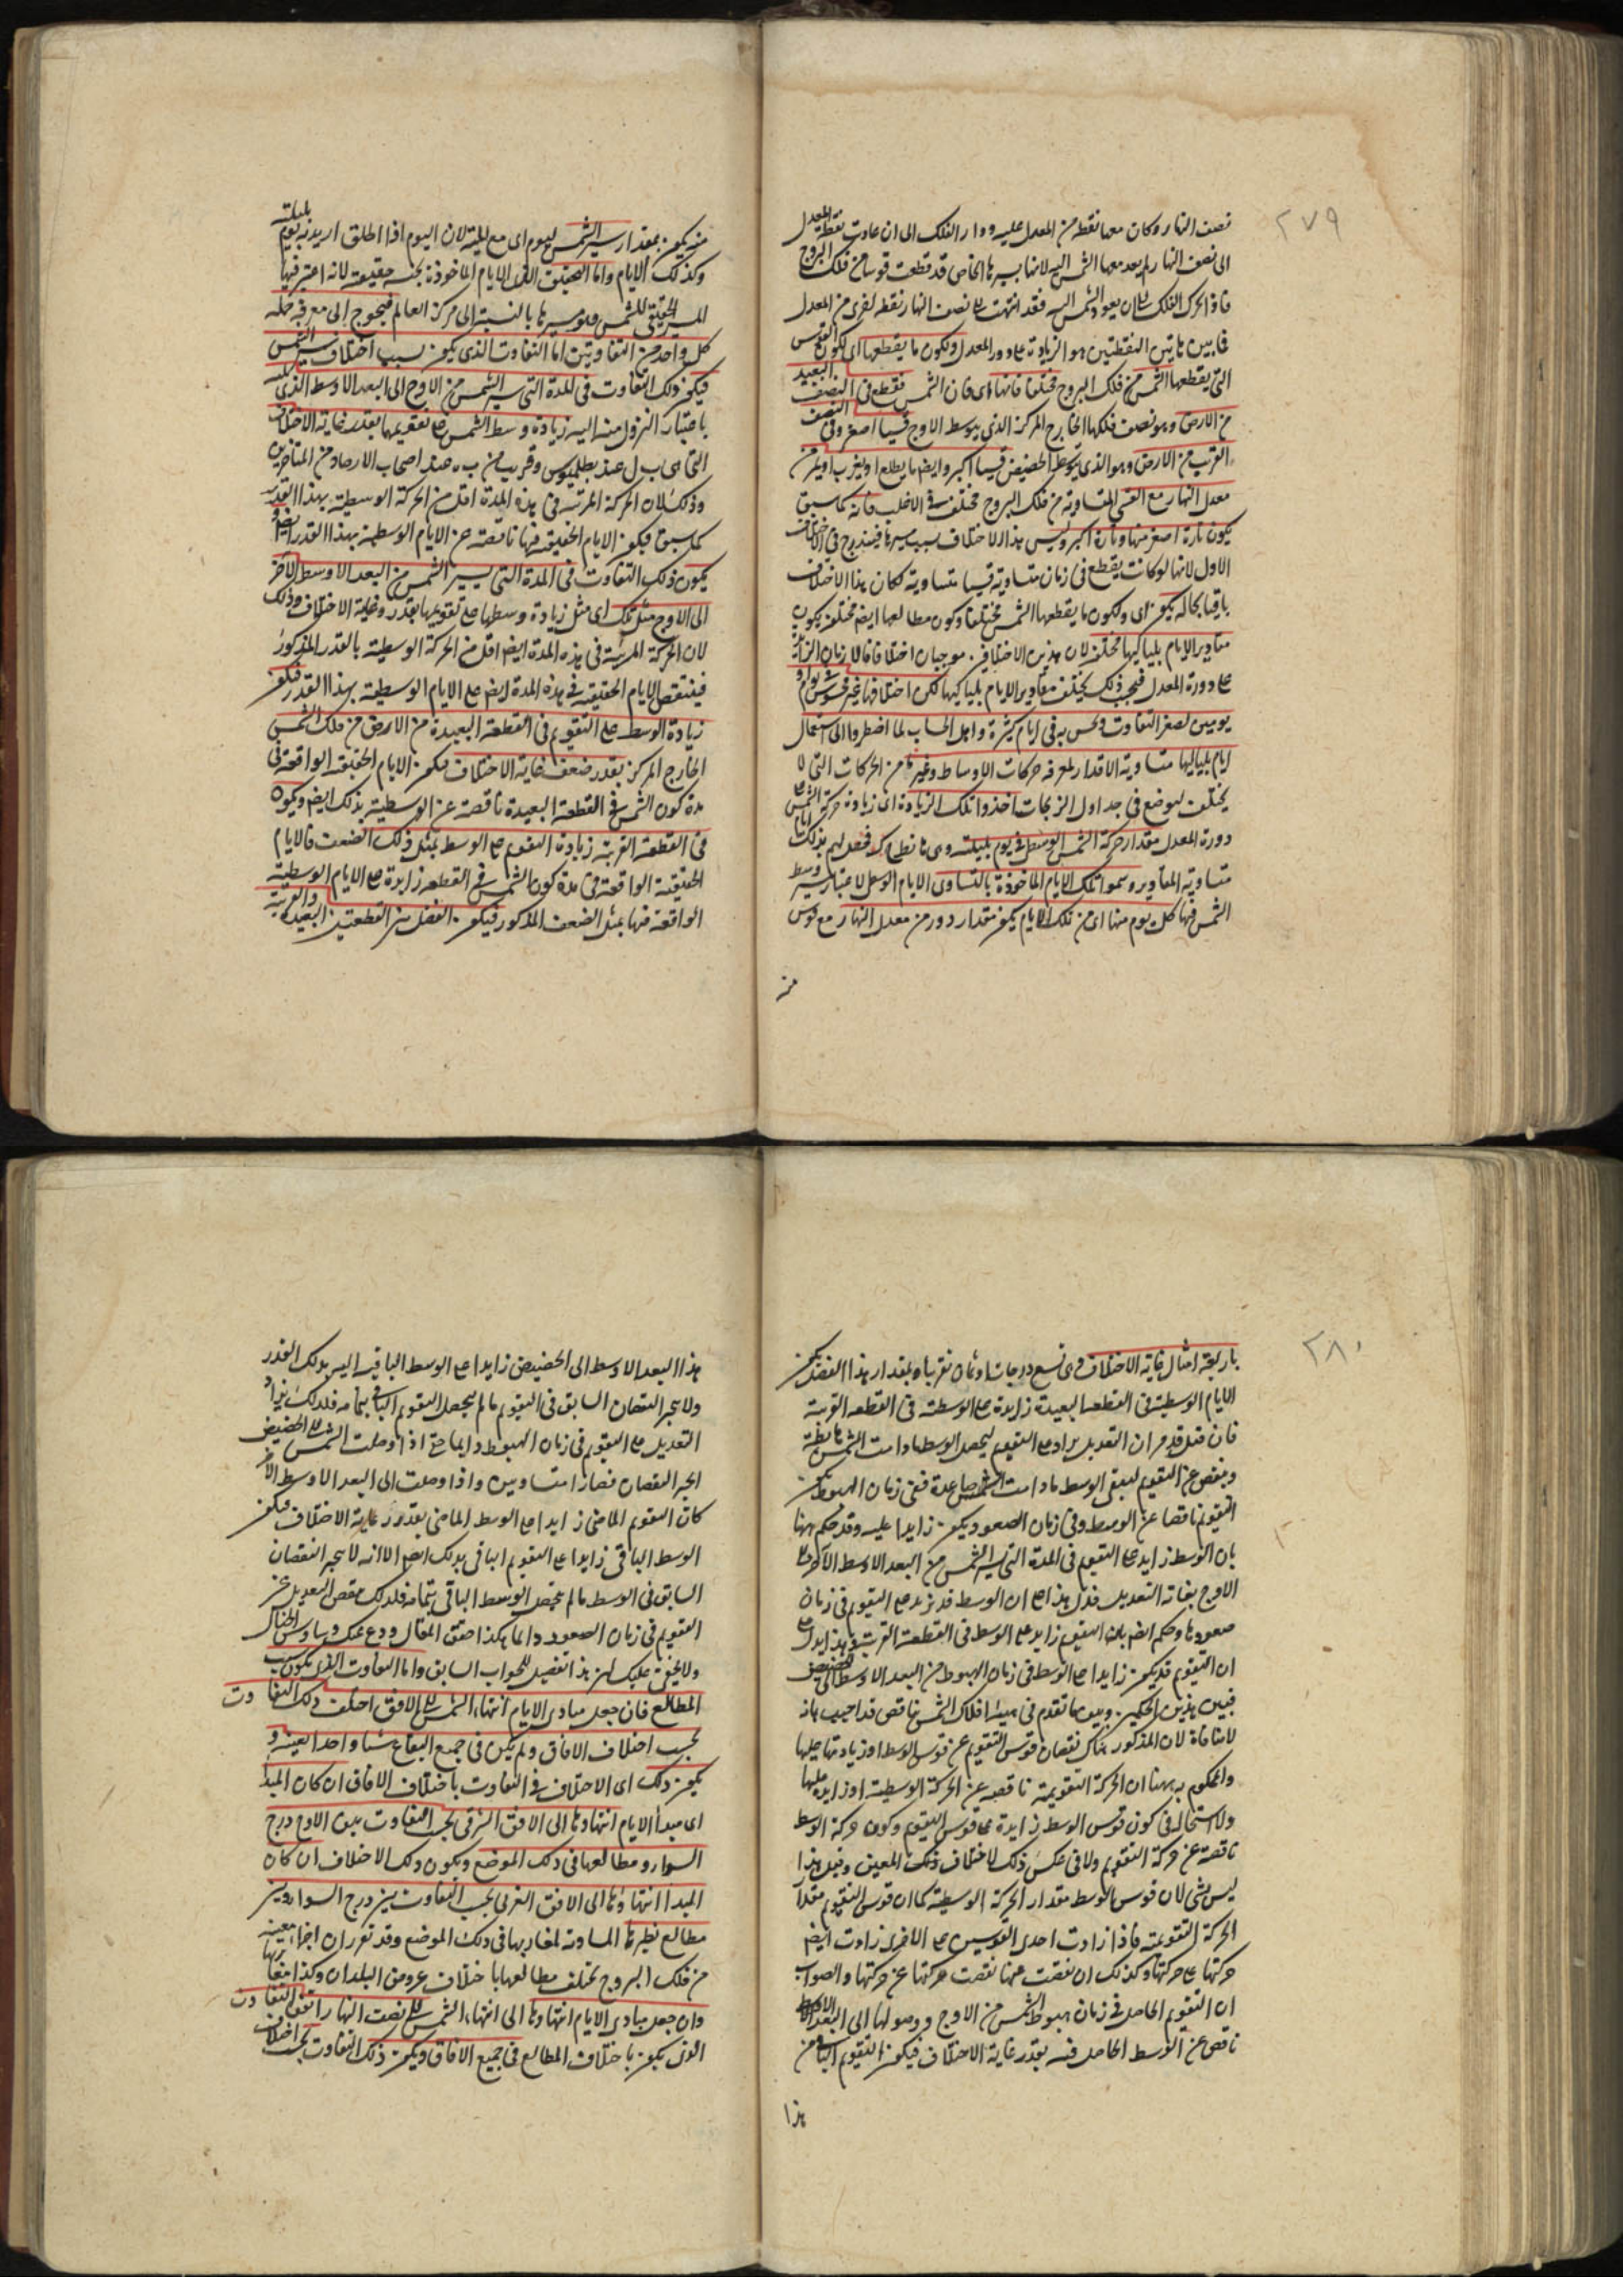 ٢٧٩
نصف النهار وكان معها نقطة من المعدل عليه ودار الفلك الى ان عادت نقطة المعدل
الى نصف النهار لم يعد معها الشمس اليه لانها بسيرها الخاص قد قطعت قوسا من فلك البروج
فاذا تحرك الفلك الى ان يعود الشمس اليه فقد انتهت الى نصف النهار نقطة اخرى من المعدل
فما بين هاتين النقطتين هو الزيادة على دور المعدل ولكون ما يقطعها اى لكون القوس
التى يقطعها الشمس من فلك البروج مختلفا فانها اى فان الشمس تقطع فى النصف البعيد
من الارض وهو نصف فلكها الخارج المركز الذى يتوسط الاوج قسيا اصغر وفى النصف
القريب من الارض وهو الذى يتوسط الحضيض قسيا اكبر وايضا ما يطلع او يغرب او يمر من
معدل النهار مع القسى المتساوية من فلك البروج مختلف فى الاغلب فانه كما سبق
يكون تارة اصغر منها وتارة اكبر وليس هذا الاختلاف بسبب سيرها فيندرج فى الاختلاف
الاول لانها لو كانت يقطع فى زمان متساوية قسيا متساوية لكان هذا الاختلاف
باقيا بحاله يكون اى ولكون ما يقطعها الشمس مختلفا وكون مطالعها ايضا مختلفة يكون
مقادير الايام بلياليها مختلفة لان هذين الاختلافين موجبان اختلافا لازمان الزائد
على دورة المعدل فيجب ذلك يختلف مقادير الايام بلياليها لكن اختلافها غير محسوس فى يوم او
يومين لصغر التفاوت ويحس به فى ايام كثيرة واهل الحساب لما اضطروا الى استعمال
ايام بلياليها متساوية الاقدار لمعرفة حركات الاوساط وغيرها من الحركات التى لا
يختلف ليوضع فى جداول الزيجات اخذوا تلك الزيادة اى زيادة حركة الشمس على
دورة المعدل مقدار حركة الشمس الوسطى فى يوم بليلته وهى فحصل لهم بذلك ايام
متساوية المقادير وسموا تلك الايام الماخوذة بالتساوى الايام الوسطى لاعتبار سير وسط
الشمس فيها كل يوم منها اى من تلك الايام يكون مقدار دور من معدل النهار مع قوس
منه
منه يكون بمقدار سير الشمس ليوم اى مع الليلة لان اليوم اذا اطلق اريد به يوم بليلته
وكذلك الايام واما الحقيقة التى الايام الماخوذة بحسبه حقيقية لانه اعتبر فيها
المسير الحقيقى للشمس وهو سيرها بالنسبة الى مركز العالم فيحوج الى معرفة جملة
كل واحد من التفاوتين اما التفاوت الذى يكون بسبب اختلاف سير الشمس
فيكون ذلك التفاوت فى المدة التى يسير الشمس من الاوج الى البعد الاوسط الذى يليه
باعتبار النزول منه اليه زيادة وسط الشمس على تقويمها بقدر غاية الاختلاف
التى هى ب ل عند بطلميوس وقريب من ب ه عند اصحاب الارصاد من المتاخرين
وذلك لان الحركة المرئية فى هذه المدة اقل من الحركة الوسطية بهذا القدر
كما سبق فيكون الايام الحقيقية فيها ناقصة عن الايام الوسطية بهذا القدر ايضا و
يكون ذلك التفاوت فى المدة التى يسير الشمس من البعد الاوسط الآخر
الى الاوج مثل تلك اى مثل زيادة وسطها على تقويمها بقدر غاية الاختلاف وذلك
لان الحركة المرئية فى هذه المدة ايضا اقل من الحركة الوسطية بالقدر المذكور
فينتقص الايام الحقيقية فى هذه المدة ايضا على الايام الوسطية بهذا القدر فيكون
زيادة الوسط على التقويم فى القطعة البعيدة من الارض من فلك الشمس
الخارج المركز بقدر ضعف غاية الاختلاف فيكون الايام الحقيقية الواقعة فى
مدة كون الشمس فى القطعة البعيدة ناقصة عن الوسطية بذلك ايضا ويكون
فى القطعة القريبة زيادة التقويم على الوسط بمثل ذلك الضعف فالايام
الحقيقية الواقعة فى مدة كون الشمس فى القطعة زايدة على الايام الوسطية
الواقعة فيها بمثل الضعف المذكور فيكون الفضل بين القطعتين البعيدة والقريبة
٢٨٠
باربعة امثال غاية الاختلاف وهى تسع درجات وثمان تقريبا وبمقدار هذا الفضل يكون
الايام الوسطية فى القطعة البعيدة زايدة على الوسطية فى القطعة القريبة
فان قيل قد مر ان التعديل يزاد على التقويم ليحصل الوسط ما دامت الشمس هابطة
وينقص عن التقويم ليبقى الوسط ما دامت الشمس صاعدة ففى زمان الهبوط يكون
التقويم ناقصا عن الوسط وفى زمان الصعود يكون زايدا عليه وقد حكم ههنا
بان الوسط زايد على التقويم فى المدة التى يسير الشمس من البعد الاوسط الآخر الى
الاوج بغاية التعديل فدل هذا على ان الوسط قد يزيد على التقويم فى زمان
صعودها وحكم ايضا بان التقويم زايد على الوسط فى القطعة القريبة وهذا يدل على
ان التقويم قد يكون زايدا على الوسط فى زمان الهبوط من البعد الاوسط الى الحضيض
فبين هذين الحكمين وبين ما تقدم فى هيئة افلاك الشمس تناقض قد اجيب بانه
لا منافاة لان المذكور هناك نقصان قوس التقويم عن قوس الوسط او زيادتها عليها
والمحكوم به ههنا ان الحركة التقويمية ناقصة عن الحركة الوسطية او زايدة عليها
ولا استحالة فى كون قوس الوسط زايدة على قوس التقويم وكون حركة الوسط
ناقصة عن حركة التقويم ولا فى عكس ذلك لاختلاف ذينك المعنيين وقيل هذا
ليس بشئ لان قوس الوسط مقدار الحركة الوسطية كما ان قوس التقويم مقدار
الحركة التقويمية فاذا زادت احدى القوسين على الاخرى زادت ايضا
حركتها على حركتها وكذلك ان نقصت عنها نقصت حركتها عن حركتها والصواب
ان التقويم الحاصل فى زمان هبوط الشمس من الاوج ووصولها الى البعد الاوسط
ناقص عن الوسط الحاصل فيه بقدر غاية الاختلاف فيكون التقويم الباقى من
هذا
هذا البعد الاوسط الى الحضيض زايدا على الوسط الباقى اليه بذلك القدر
ولا ينجبر النقصان السابق فى التقويم ما لم يحصل التقويم الباقى بتمامه فلذلك يزاد
التعديل على التقويم فى زمان الهبوط دايما حتى اذا وصلت الشمس الى الحضيض
انجبر النقصان فصارا متساويين واذا وصلت الى البعد الاوسط الآخر
كان التقويم الماضى زايدا على الوسط الماضى بقدر غاية الاختلاف فيكون
الوسط الباقى زايدا على التقويم الباقى بذلك ايضا الا انه لا ينجبر النقصان
السابق فى الوسط ما لم يحصل الوسط الباقى بتمامه فلذلك ينقص التعديل عن
التقويم فى زمان الصعود دايما هكذا حقق المقال ودع عنك وساوس الخيال
ولا يخفى عليك ان هذا تفصيل للجواب السابق واما التفاوت الذى يكون بسبب
المطالع فان جعل مبادى الايام انتهاء الشمس الى الافق اختلف ذلك التفاوت
بحسب اختلاف الافاق ولم يكن فى جميع البقاع شيئا واحدا بعينه و
يكون ذلك اى الاختلاف فى التفاوت باختلاف الافاق ان كان المبدا
اى مبدا الايام انتهاؤها الى الافق الشرقى بحسب التفاوت بين الاوج درج
السواء ومطالعها فى ذلك الموضع ويكون ذلك الاختلاف ان كان
المبدا انتهاؤها الى الافق الغربى بحسب التفاوت بين درج السواء وبين
مطالع نظيرها المساوية لمغاربها فى ذلك الموضع وقد تقرر ان اجزاء معينة
من فلك البروج يختلف مطالعها باختلاف عروض البلدان وكذا مغاربها
وان جعل مبادى الايام انتهاؤها الى انتهاء الشمس الى نصف النهار اتفق التفاوت
الذى يكون باختلاف المطالع فى جميع الافاق ويكون ذلك التفاوت بحسب اختلاف